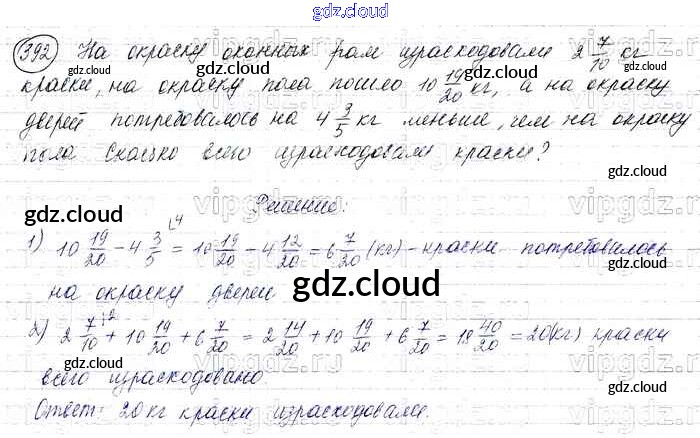 gdz.cloud
392) На окраску оконных рам израсходовали 2 7/10 кг
краски, на окраску пола пошло 10 19/20 кг, а на окраску
дверей потребовалось на 4 3/5 кг меньше, чем на окраску
пола Сколько всего израсходовали краски?
Решение:
1) 10 19/20 − 4 3/5 = 10 19/20 − 4 12/20 = 6 7/20 (кг) - краски потребовалось
на окраску дверей
2) 2 7/10 + 10 19/20 + 6 7/20 = 2 14/20 + 10 19/20 + 6 7/20 = 18 40/20 = 20(кг) краски
всего израсходовано.
Ответ: 20 кг краски израсходовали.